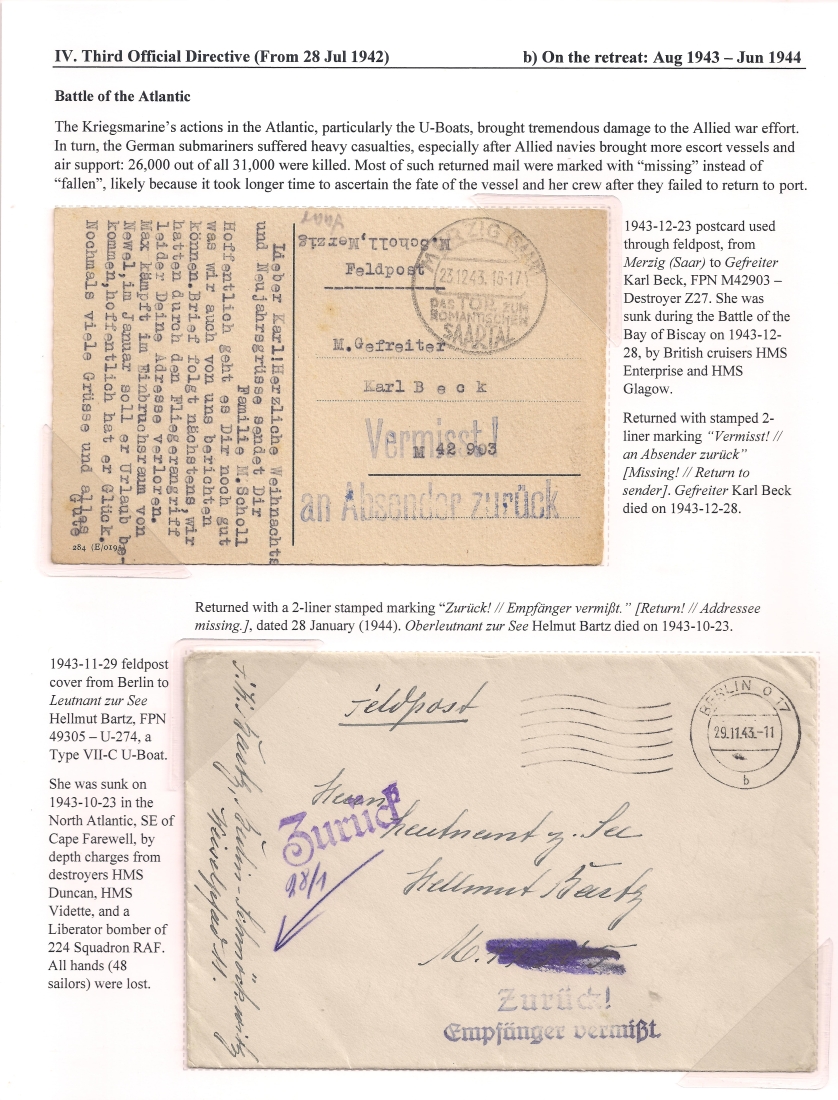 IV. Third Official Directive (From 28 Jul 1942)
b) On the retreat: Aug 1943 – Jun 1944
Battle of the Atlantic
The Kriegsmarine's actions in the Atlantic, particularly the U-Boats, brought tremendous damage to the Allied war effort.
In turn, the German submariners suffered heavy casualties, especially after Allied navies brought more escort vessels and
air support: 26,000 out of all 31,000 were killed. Most of such returned mail were marked with “missing” instead of
“fallen”, likely because it took longer time to ascertain the fate of the vessel and her crew after they failed to return to port.
Lieber Karl!Herzliche Weihnachts
und Neujahrsgrüsse sendet Dir
Familie M.Scholl
Hoffentlich geht es Dir noch gut
was wir auch von uns berichten
können.Brief folgt nächstens,wir
hatten durch den Fliegerangriff
leider Deine Adresse verloren.
Max kämpft im Einbruchsraum von
Newel,im Januar soll er Urlaub be-
kommen,hoffentlich hat er Glück.
Nochmals viele Grüsse und alles
Gute
284 (E/019
M.Scholl,Merzig
Saar
MERZIG (SAAR)
23.12.43. 16-17
DAS TOR ZUM
ROMANTISCHEN
SAARTAL
Feldpost
M.Gefreiter
Karl Beck
Vermisst!
M 42 903
an Absender zurück
1943-12-23 postcard used
through feldpost, from
Merzig (Saar) to Gefreiter
Karl Beck, FPN M42903 –
Destroyer Z27. She was
sunk during the Battle of the
Bay of Biscay on 1943-12-
28, by British cruisers HMS
Enterprise and HMS
Glagow.
Returned with stamped 2-
liner marking “Vermisst! //
an Absender zurück”
[Missing! // Return to
sender]. Gefreiter Karl Beck
died on 1943-12-28.
Returned with a 2-liner stamped marking “Zurück! // Empfänger vermißt.” [Return! // Addressee
missing.], dated 28 January (1944). Oberleutnant zur See Helmut Bartz died on 1943-10-23.
1943-11-29 feldpost
cover from Berlin to
Leutnant zur See
Hellmut Bartz, FPN
49305 – U-274, a
Type VII-C U-Boat.
She was sunk on
1943-10-23 in the
North Atlantic, SE of
Cape Farewell, by
depth charges from
destroyers HMS
Duncan, HMS
Vidette, and a
Liberator bomber of
224 Squadron RAF.
All hands (48
sailors) were lost.
Feldpost
BERLIN O 17
29.11.43.-11
b
Herrn
Zurück
28/1
Leutnant z. See
Hellmut Bartz
M.
Zurück!
Empfänger vermißt.
Bartz, Berlin-
11.